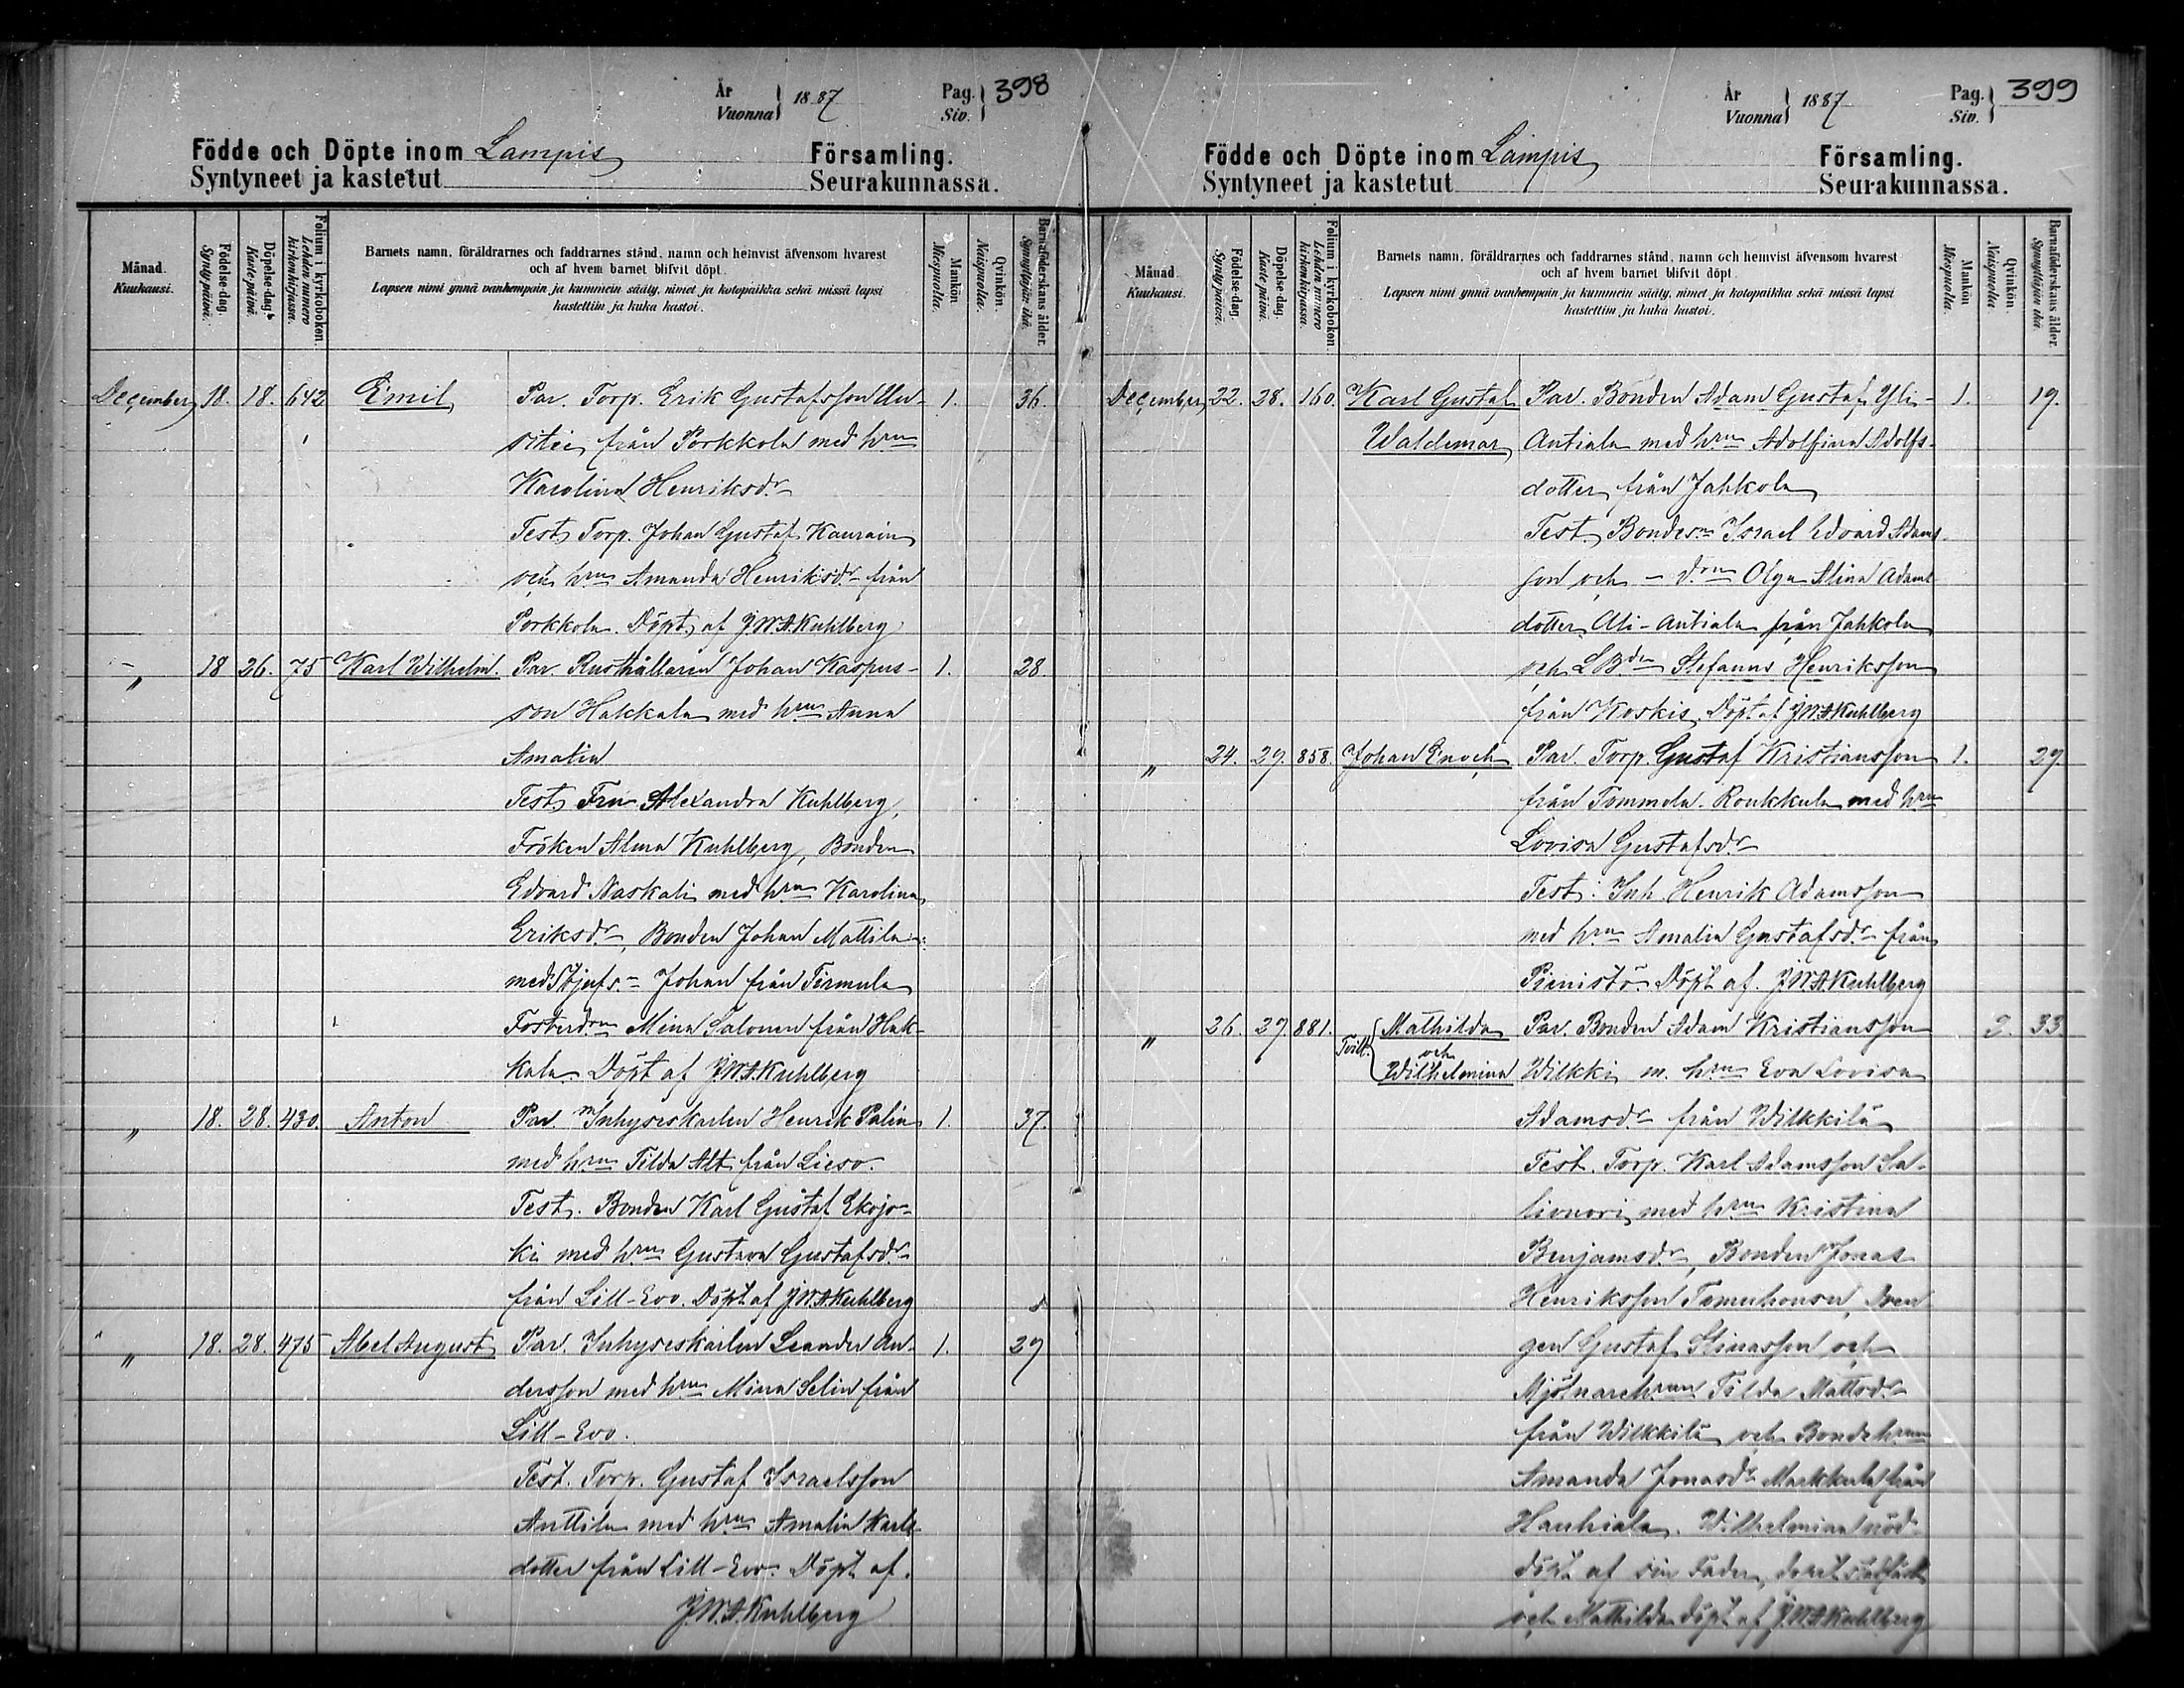 År
Vuonna 1887
Pag. 398
Siv.
Födde och Döpte inom Lampis Församling.
Syntyneet ja kastetut Seurakunnassa.
Månad.
Kuukausi.
Födelse-dag.
Syntypäivä.
Döpelse-dag.
Kastepäivä.
Folium i kyrkoboken.
Lehden numero
kirkonkirjassa.
Barnets namn, föräldrarnes och faddrarnes stånd, namn och hemvist äfvensom hvarest
och af hvem barnet blifvit döpt.
Lapsen nimi ynnä vanhempain ja kummein sääty, nimet ja kotopaikka sekä missä lapsi
kastettiin ja kuka kastoi.
Mankön.
Miespuolta.
Qvinkön.
Naispuolta.
Barnaföderskans ålder.
Synnyttäjän ikä.
December 18. 18. 642 Emil Par. Torp. Erik Gustafsson Uu- 1. 36.
sitie från Porkkola med hrn
Karolina Henriksdr
Test. Torp. Johan Gustaf
och hrn Amanda Henriksdr från
Porkkola. Döpt af J W A Kuhlberg
" 18 26. 75 Karl Wilhelm. Par. Rusthållaren Johan Kaspers- 1. 28.
son Hakkala med hrn Anna
Amalia
Test. Fru Alexandra Kuhlberg,
Fröken Alma Kuhlberg, Bonden
Edvard Naskali med hrn Karolina
Eriksdr, Bonden Johan Mattila
med Johan från Tirmula
Fosterdrn Mina Salonen från Hak-
kala. Döpt af J W A Kuhlberg
" 18. 28. 430. Anton Par. Inhyseskarlen Henrik Palin 1. 37.
med hrn Tilda Alt från Lieso.
Test. Bonden Karl Gustaf Ekojo-
ki med hrn Gustava Gustafsdr
från Lill-Evo. Döpt af J W A Kuhlberg
" 18. 28. 475 Abel August Par. Inhyseskarlen Leander An- 1. 29
dersson med hrn Mina Selin från
Lill-Evo.
Test. Torp. Gustaf Israelsson
Anttila med hrn Amalia Karls-
dotter från Lill-Evo. Döpt af
J. W. A. Kuhlberg
År
Vuonna 1887
Pag. 399
Siv.
Födde och Döpte inom Lampis Församling.
Syntyneet ja kastetut Seurakunnassa.
Månad.
Kuukausi.
Födelse-dag.
Syntypäivä.
Döpelse-dag.
Kastepäivä.
Folium i kyrkoboken.
Lehden numero
kirkonkirjassa.
Barnets namn, föräldrarnes och faddrarnes stånd, namn och hemvist äfvensom hvarest
och af hvem barnet blifvit döpt.
Lapsen nimi ynnä vanhempain ja kummein sääty, nimet ja kotopaikka sekä missä lapsi
kastettiin ja kuka kastoi.
Mankön.
Miespuolta.
Qvinkön.
Naispuolta.
Barnaföderskans ålder.
Synnyttäjän ikä.
December 22. 28. 160. Karl Gustaf Par. Bonden Adam Gustaf Yli- 1. 19.
Waldemar Antiala med hrn Adolfina Adolfs-
dotter från Jahkola
Test. Bondesn Israel Edvard Adams-
son och - drn Olga Stina Adams-
dotter Ali-Antiala från Jahkola
och Stefanus Henriksson
från Koskis. Döpt af J W A Kuhlberg
" 24. 29. 858. Johan Enoch Par. Torp. Gustaf Kristiansson 1. 29.
från Tommola. Roukkula med hrn
Lovisa Gustafsdr
Test: Inh. Henrik Adamsson
med hrn Amalia Gustafsdr från
Pienistö. Döpt af. J W A Kuhlberg
" 26. 27. 881. Tvill. Mathilda Par. Bonden Adam Kristiansson 2. 33.
och
Wilhelmina Wilkki m. hrn Eva Lovisa
Adamsdr från Wilkkilä
Test. Torp. Karl Adamsson Sa-
lionori med hrn Kristina
Benjamsdr, Bonden Jonas
Henriksson Dren
gen Gustaf Stinasson och
Mjölnarehrun Tilda Mattsdr
från Wilkkilä och Bondehrun
Amanda Jonasdr Markkula från
Hauhiala. Wilhelmina nöd-
döpt af sin Fader,
och Mathilda döpt af J. W A Kuhlberg